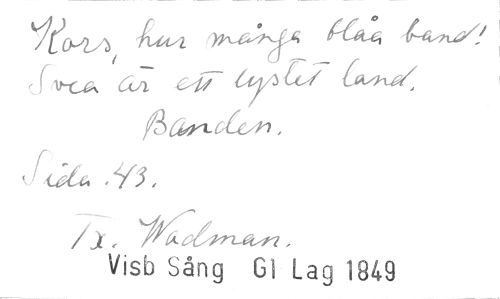 Kors, hur många blåa band!
Svea är ett lystet land.
Banden.
Sida 43.
Tx. Wadman.
Visb Sång Gl Lag 1849